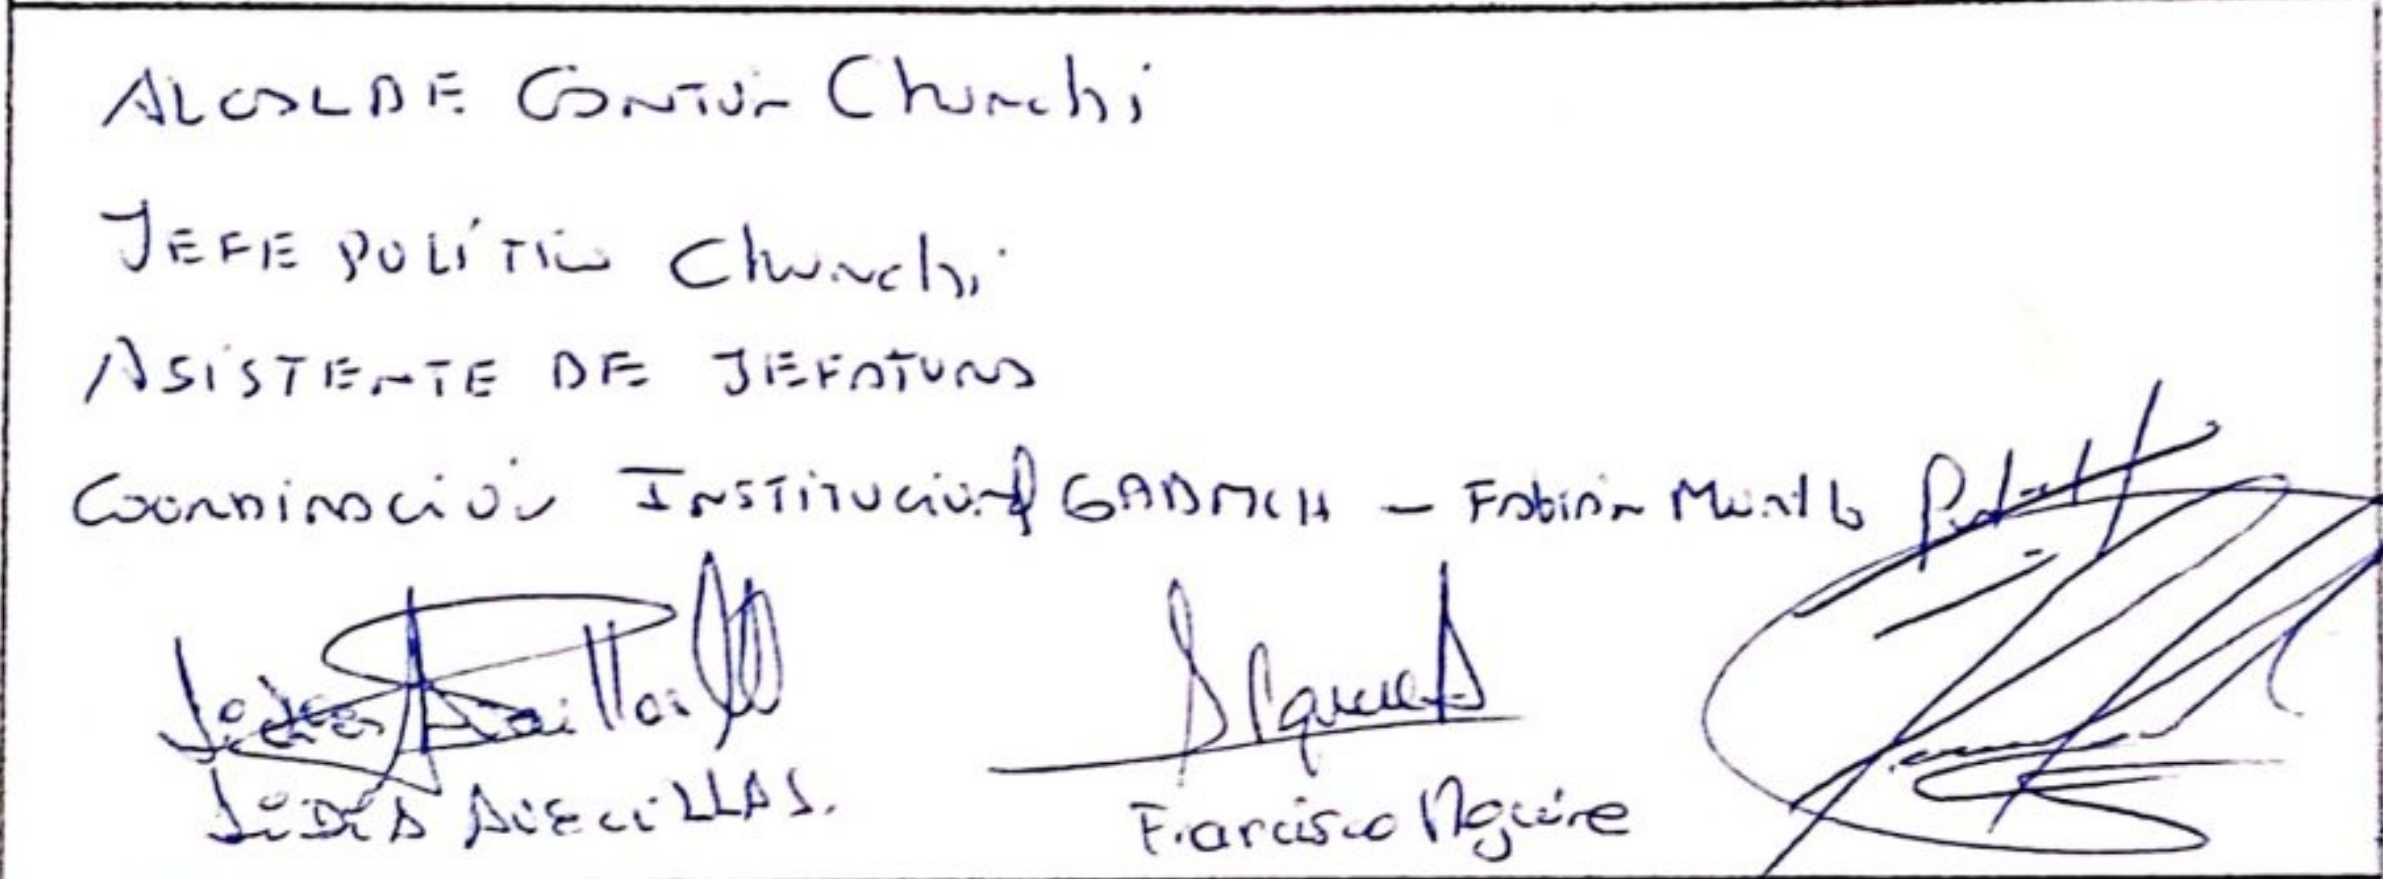 ALCALDE Cantón Chunchi
JEFE POLÍTICO Chunchi
ASISTENTE DE JEFATURA
Coordinación Institucional GADMCH - Fabián Murillo
LIDIA AVECILLAS.
Francisco Aguirre